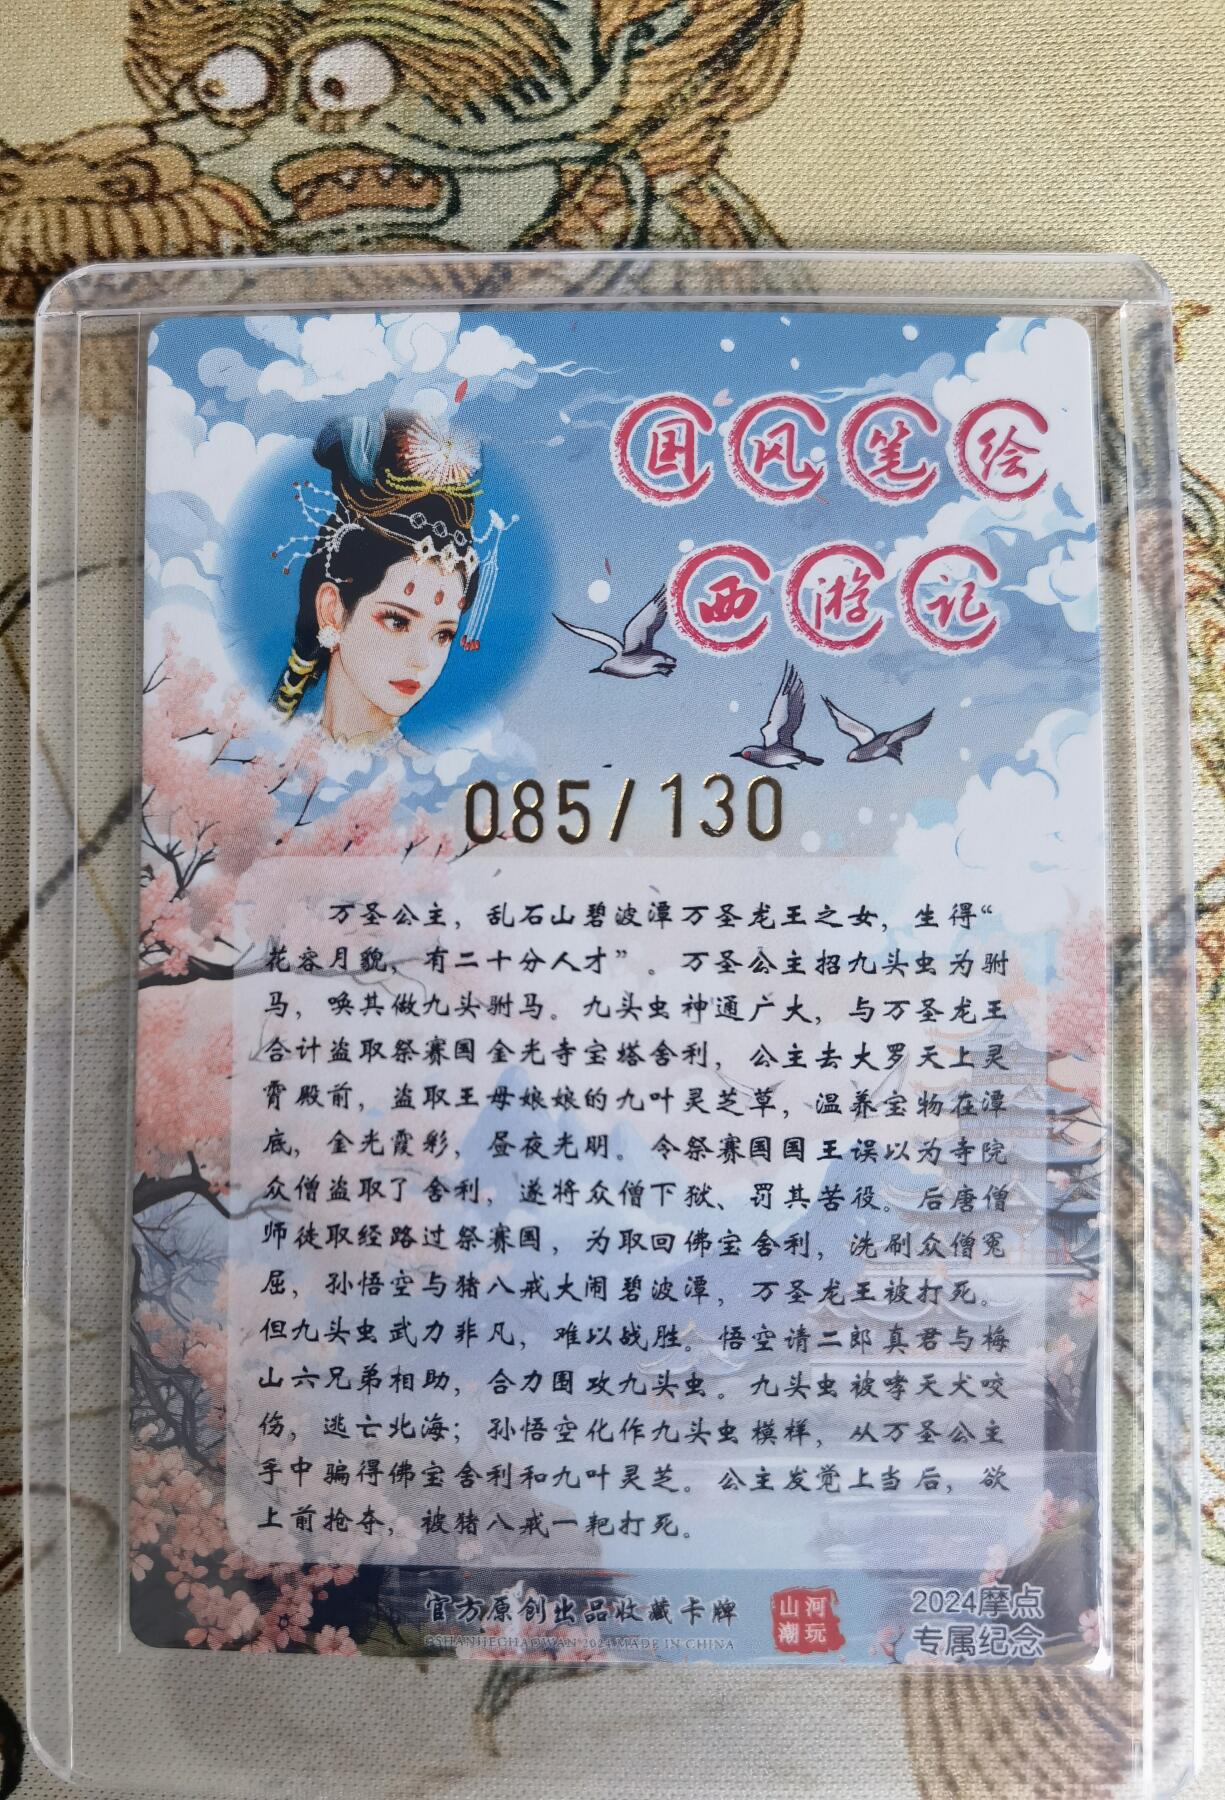 国风笔绘
西游记
085/130
万圣公主，乱石山碧波潭万圣龙王之女，生得“
花容月貌，有二十分人才”。万圣公主招九头虫为驸
马，唤其做九头驸马。九头虫神通广大，与万圣龙王
合计盗取祭赛国金光寺宝塔舍利，公主去大罗天上灵
霄殿前，盗取王母娘娘的九叶灵芝草，温养宝物在潭
底，金光霞彩，昼夜光明。令祭赛国国王误以为寺院
众僧盗取了舍利，遂将众僧下狱、罚其苦役。后唐僧
师徒取经路过祭赛国，为取回佛宝舍利，洗刷众僧冤
屈，孙悟空与猪八戒大闹碧波潭，万圣龙王被打死。
但九头虫武力非凡，难以战胜。悟空请二郎真君与梅
山六兄弟相助，合力围攻九头虫。九头虫被哮天犬咬
伤，逃亡北海；孙悟空化作九头虫模样，从万圣公主
手中骗得佛宝舍利和九叶灵芝。公主发觉上当后，欲
上前抢夺，被猪八戒一耙打死。
官方原创出品收藏卡牌
©SHANHECHAOWAN 2024 MADE IN CHINA
山河
潮玩
2024摩点
专属纪念